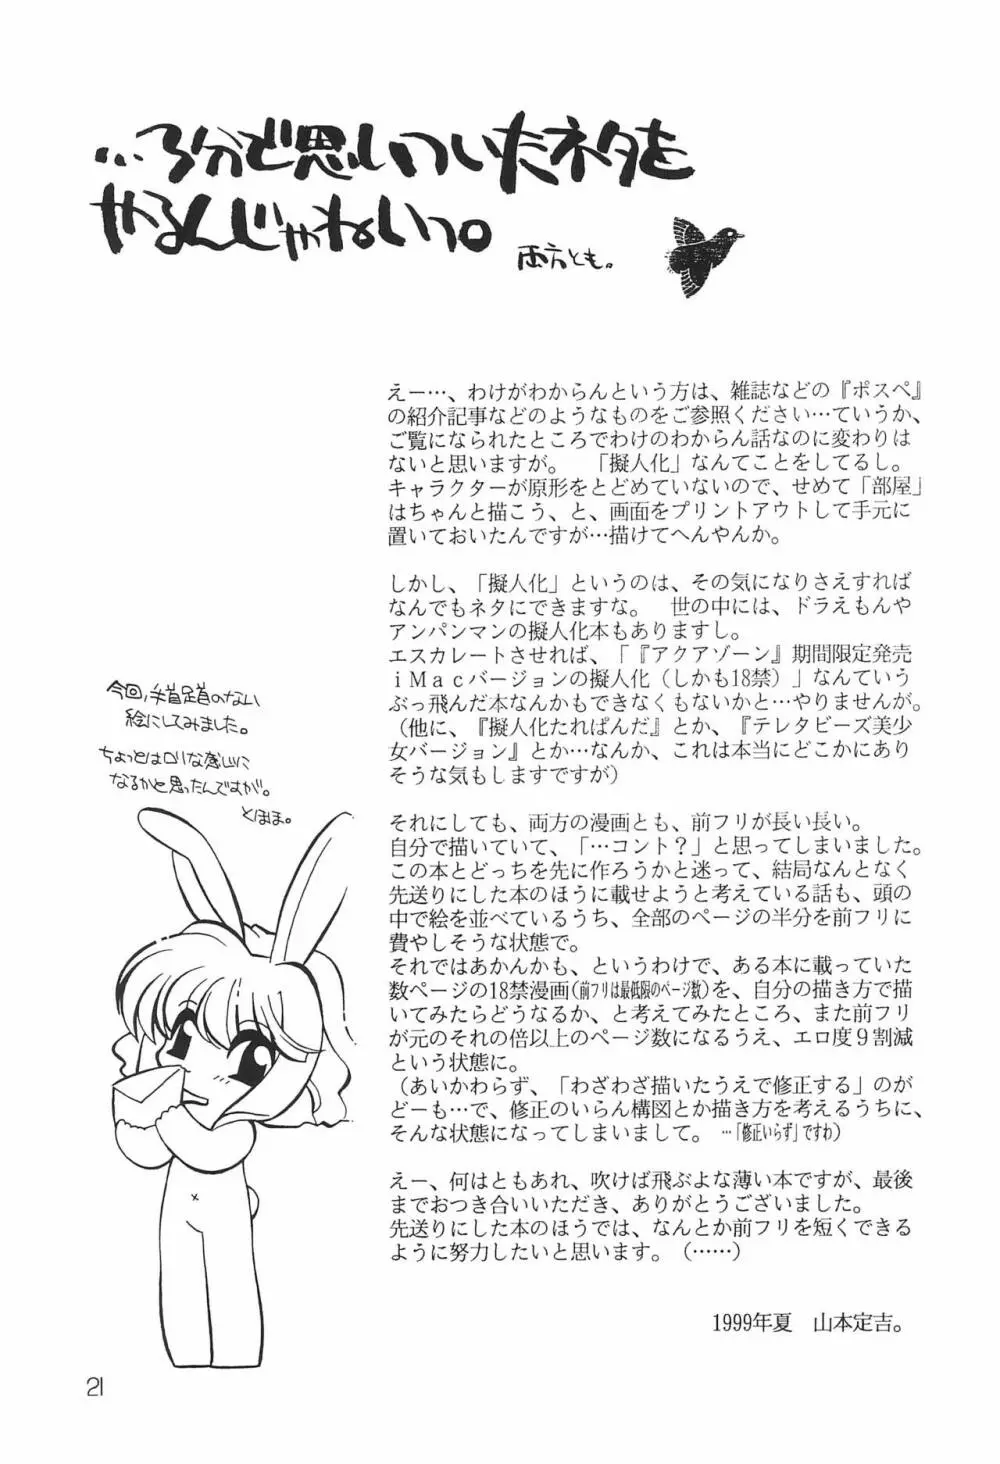 …3分で思いついたネタを
やるんじゃねいっ。
両方とも。
えー…、わけがわからんという方は、雑誌などの『ポスペ』
の紹介記事などのようなものをご参照ください…ていうか、
ご覧になられたところでわけのわからん話なのに変わりは
ないと思いますが。　「擬人化」なんてことをしてるし。
キャラクターが原形をとどめていないので、せめて「部屋」
はちゃんと描こう、と、画面をプリントアウトして手元に
置いておいたんですが…描けてへんやんか。
しかし、「擬人化」というのは、その気になりさえすれば
なんでもネタにできますな。　世の中には、ドラえもんや
アンパンマンの擬人化本もありますし。
エスカレートさせれば、「『アクアゾーン』期間限定発売
ｉＭａｃバージョンの擬人化（しかも18禁）」なんていう
ぶっ飛んだ本なんかもできなくもないかと…やりませんが。
（他に、『擬人化たれぱんだ』とか、『テレタビーズ美少
女バージョン』とか…なんか、これは本当にどこかにあり
そうな気もしますですが）
今回、手首足首のない
絵にしてみました。
ちょっとはロリな感じに
なるかと思ったんですが。
とほほ。
それにしても、両方の漫画とも、前フリが長い長い。
自分で描いていて、「…コント？」と思ってしまいました。
この本とどっちを先に作ろうかと迷って、結局なんとなく
先送りにした本のほうに載せようと考えている話も、頭の
中で絵を並べているうち、全部のページの半分を前フリに
費やしそうな状態で。
それではあかんかも、というわけで、ある本に載っていた
数ページの18禁漫画(前フリは最低限のページ数)を、自分の描き方で描
いてみたらどうなるか、と考えてみたところ、また前フリ
が元のそれの倍以上のページ数になるうえ、エロ度９割減
という状態に。
（あいかわらず、「わざわざ描いたうえで修正する」のが
どーも…で、修正のいらん構図とか描き方を考えるうちに、
そんな状態になってしまいまして。 …「修正いらず」ですわ）
えー、何はともあれ、吹けば飛ぶよな薄い本ですが、最後
までおつき合いいただき、ありがとうございました。
先送りにした本のほうでは、なんとか前フリを短くできる
ように努力したいと思います。（……）
1999年夏　山本定吉。
21